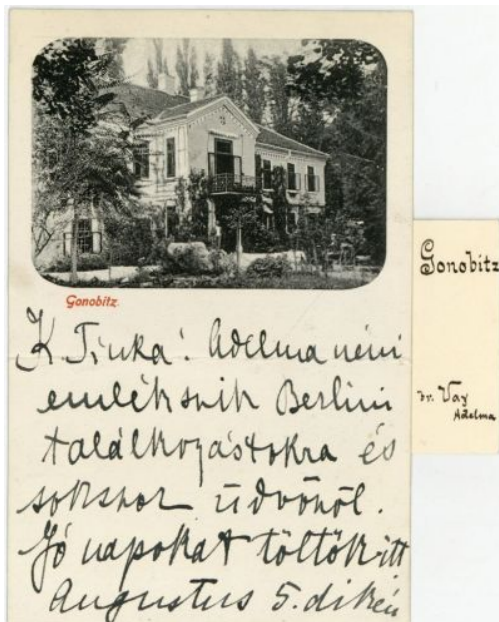 Gonobitz.
K Tinka! Adelma néni
emlékszik Berlini
találkozástokra és
sokszor üdvözöl.
Jó napokat töltök itt
Augustus 5.dikén
Gonobitz
br. Vay
Adelma